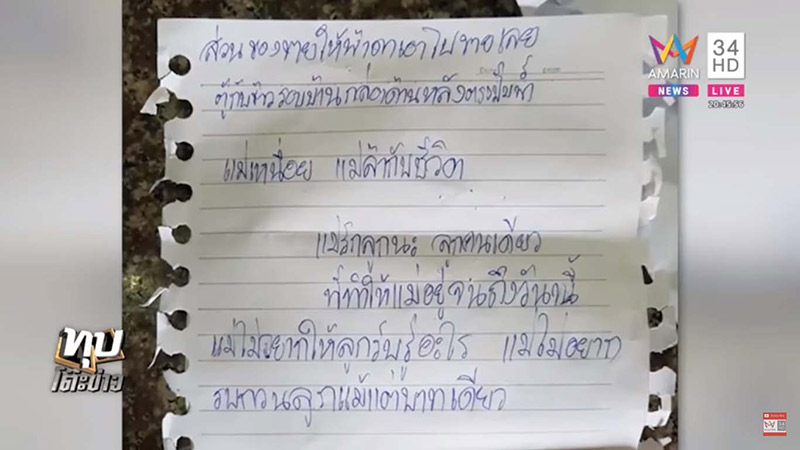 ส่วนของขายให้ฟ้าดาเอาไปขายเลย
ตู้กับข้าว รอบบ้าน กล่องด้านหลังตรงปั๊มน้ำ
แม่เหนื่อย แม่ล้ากับชีวิต
แม่รักลูกนะ ลูกคนเดียว
ที่ทำให้แม่อยู่จนถึงวันนี้
แม่ไม่อยากให้ลูกรับรู้อะไร แม่ไม่อยาก
รบกวนลูกแม้แต่บาทเดียว
AMARIN
NEWS
34
HD
LIVE
20:45:56
ทุบ
โต๊ะข่าว